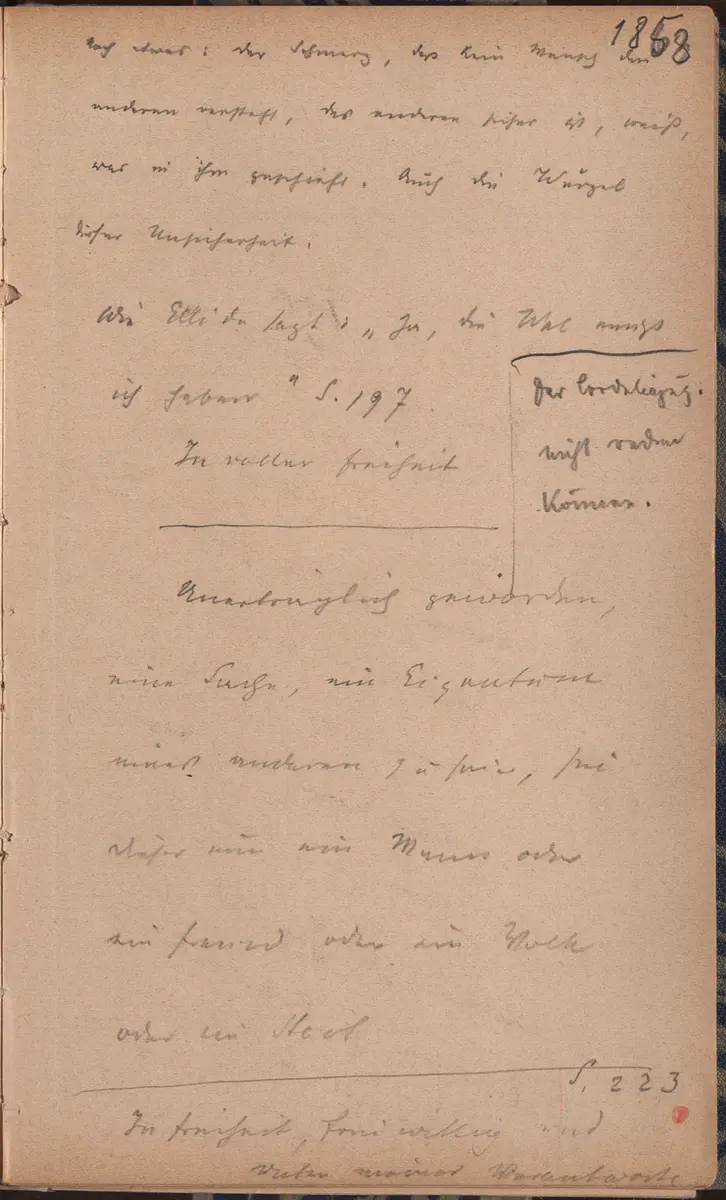 1858
noch etwas: der Schmerz, dass kein Mensch den
anderen versteht, des anderen sicher ist, weiß,
was in ihm geschieht. Auch die Wurzel
dieser Unsicherheit.
Wie Ellida sagt: „Ja, die Wal muss
ich haben" S. 197
In voller Freiheit
Der
nicht reden
Können.
Unerträglich geworden,
eine Sache, ein Eigentum
eines anderen zu sein, sei
dieser nun ein Mann oder
ein Freund oder ein Volk
oder ein
S. 223
In Freiheit, freiwillig und
unter meiner Verantwort